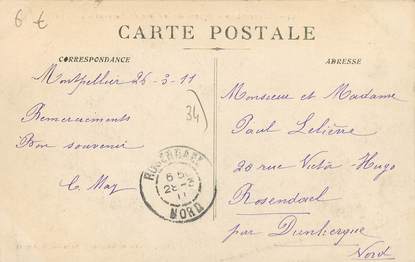 6 €
CARTE POSTALE
CORRESPONDANCE
ADRESSE
Montpellier 26-3-11
Remerciements
Bon souvenir
34
ROSENDAEL
6
28-3
11
NORD
Monsieur et Madame
Paul Lelièvre
20 rue Victor Hugo
Rosendael
par Dunkerque
Nord